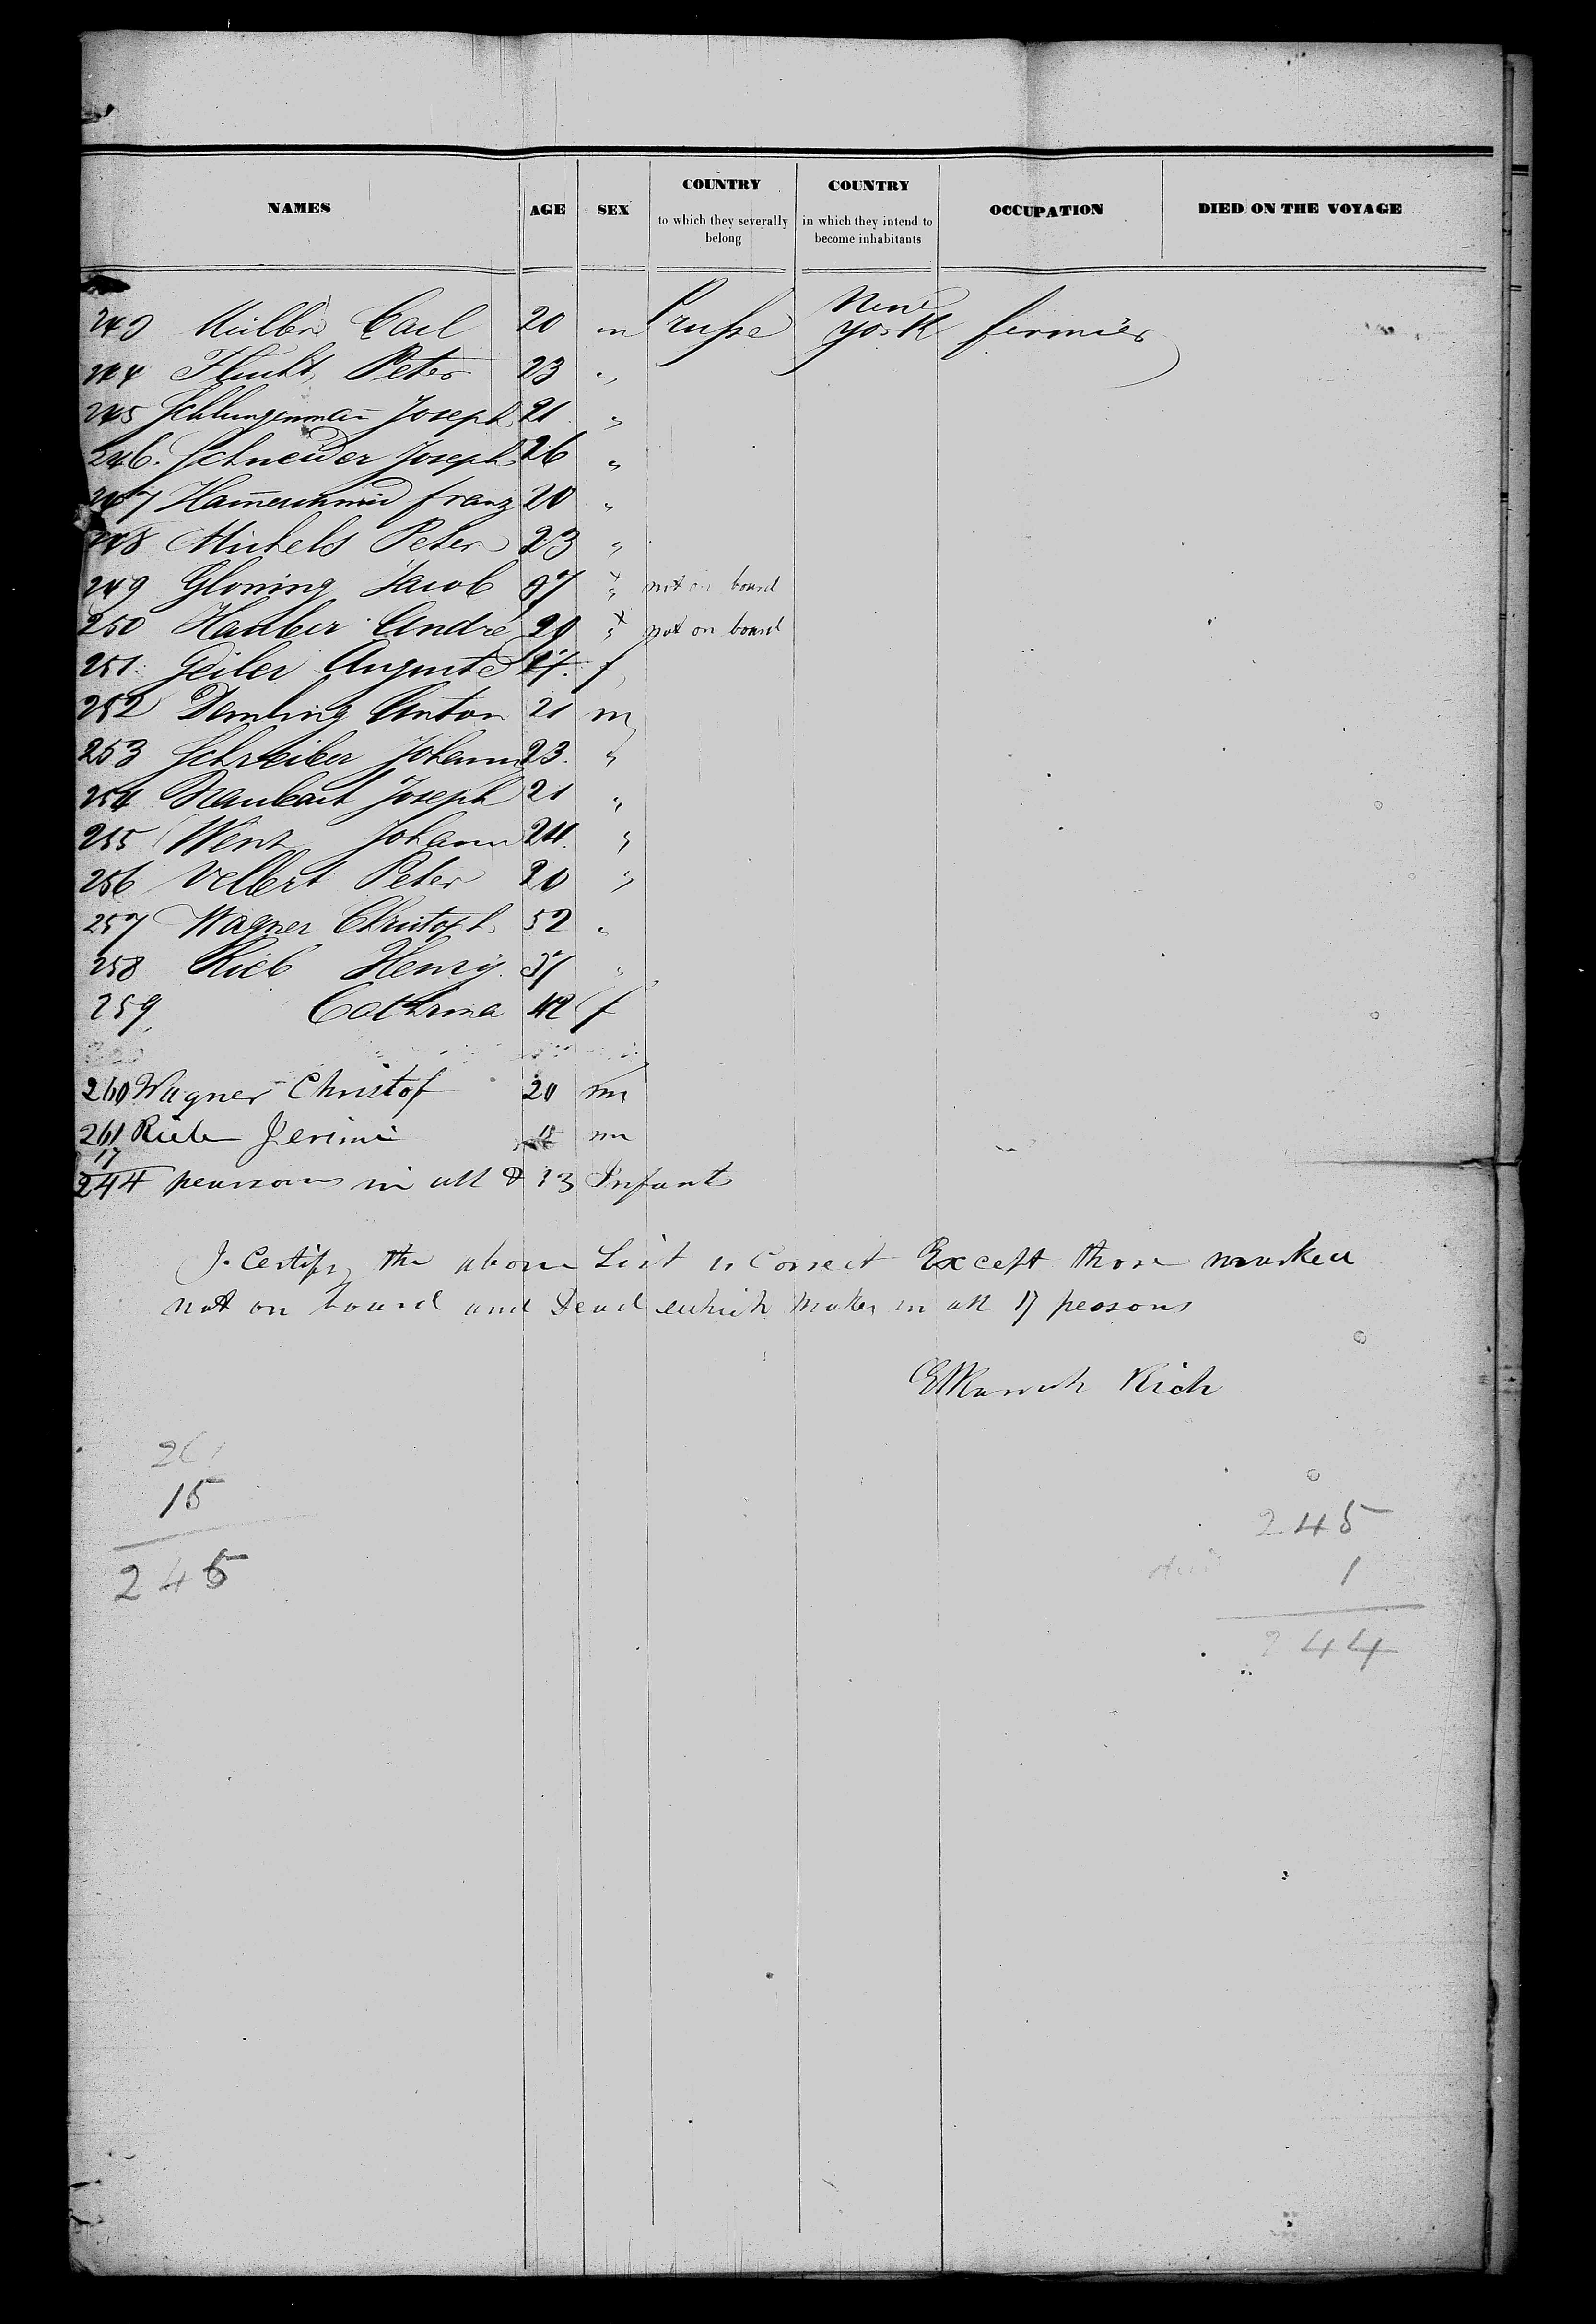 NAMES AGE SEX COUNTRY to which they severally belong COUNTRY in which they intend to become inhabitants OCCUPATION DIED ON THE VOYAGE
243 Müller Carl 20 m Prusse New York fermier
244 Peter 23 "
245 Joseph 21 "
246. Schneider Joseph 26 "
247 franz 20 "
248 Michels Peter 23 "
249 Gloning Jacob 37 x " not on board
250 Hauber Andre 29 x " not on board
251. Geiler Auguste 24. f
252 Demling Anton 21 m
253 Schreiber Johann 23. "
254 Joseph 21 "
255 Went Johann 24. "
256 Velbert Peter 20 "
257 Wagner Christoph 52 "
258 Rieb Henry. 37 "
259 Cathrina 42 f
260 Wagner Christof 20 m
261 Rieb 18 m
17
244 pearsons in all & 13 Infant
I Certify the above List is Correct Except those marked
not on board and Dead which makes in all 17 persons
Rich
261
15
245
245
1
244